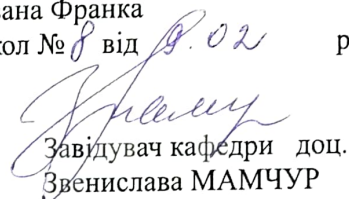 вана Франка
кол № 8 від 9.02 р
Завідувач кафедри доц.
Звенислава МАМЧУР